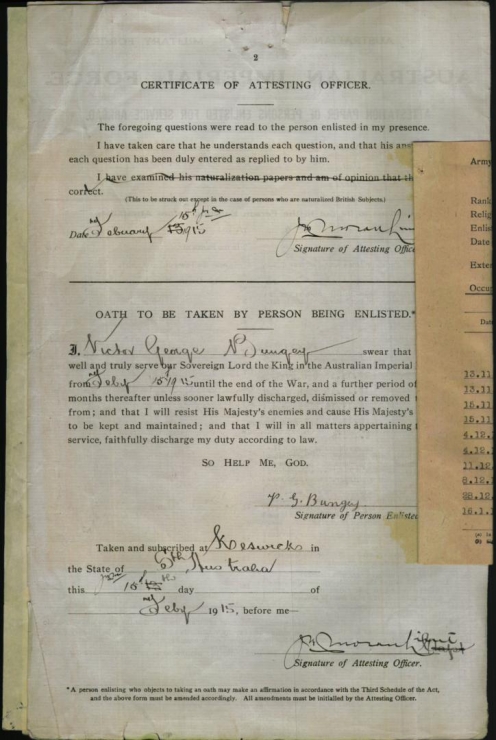 2
CERTIFICATE OF ATTESTING OFFICER.
The foregoing questions were read to the person enlisted in my presence.
I have taken care that he understands each question, and that his
each question has been duly entered as replied to by him.
I have examined his naturalization papers and am of opinion that
correct.
(This to be struck out except in the case of persons who are naturalized British Subjects.)
Date February 1915
Signature of Attesting
OATH TO BE TAKEN BY PERSON BEING ENLISTED.*
I, Victor George Bungey swear that
well and truly serve our Sovereign Lord the King in the Australian Imperial
from Feby 1915 until the end of the War, and a further period of
months thereafter unless sooner lawfully discharged, dismissed or removed
from; and that I will resist His Majesty's enemies and cause His Majesty's
to be kept and maintained; and that I will in all matters appertaining
service, faithfully discharge my duty according to law.
SO HELP ME, GOD.
G. Bungey
Signature of Person Enlisted
Taken and subscribed at Keswick in
the State of Sth Australia
this day of
Feby 1915, before me—
Signature of Attesting Officer.
*A person enlisting who objects to taking an oath may make an affirmation in accordance with the Third Schedule of the Act,
and the above form must be amended accordingly. All amendments must be initialled by the Attesting Officer.
Army
Rank
Relig
Enlis
Date
Exte
Occup
Dat
13.11
13.11
15.11
15.11
4.12.
4.12.
11.12
8.12.
28.12
16.1.